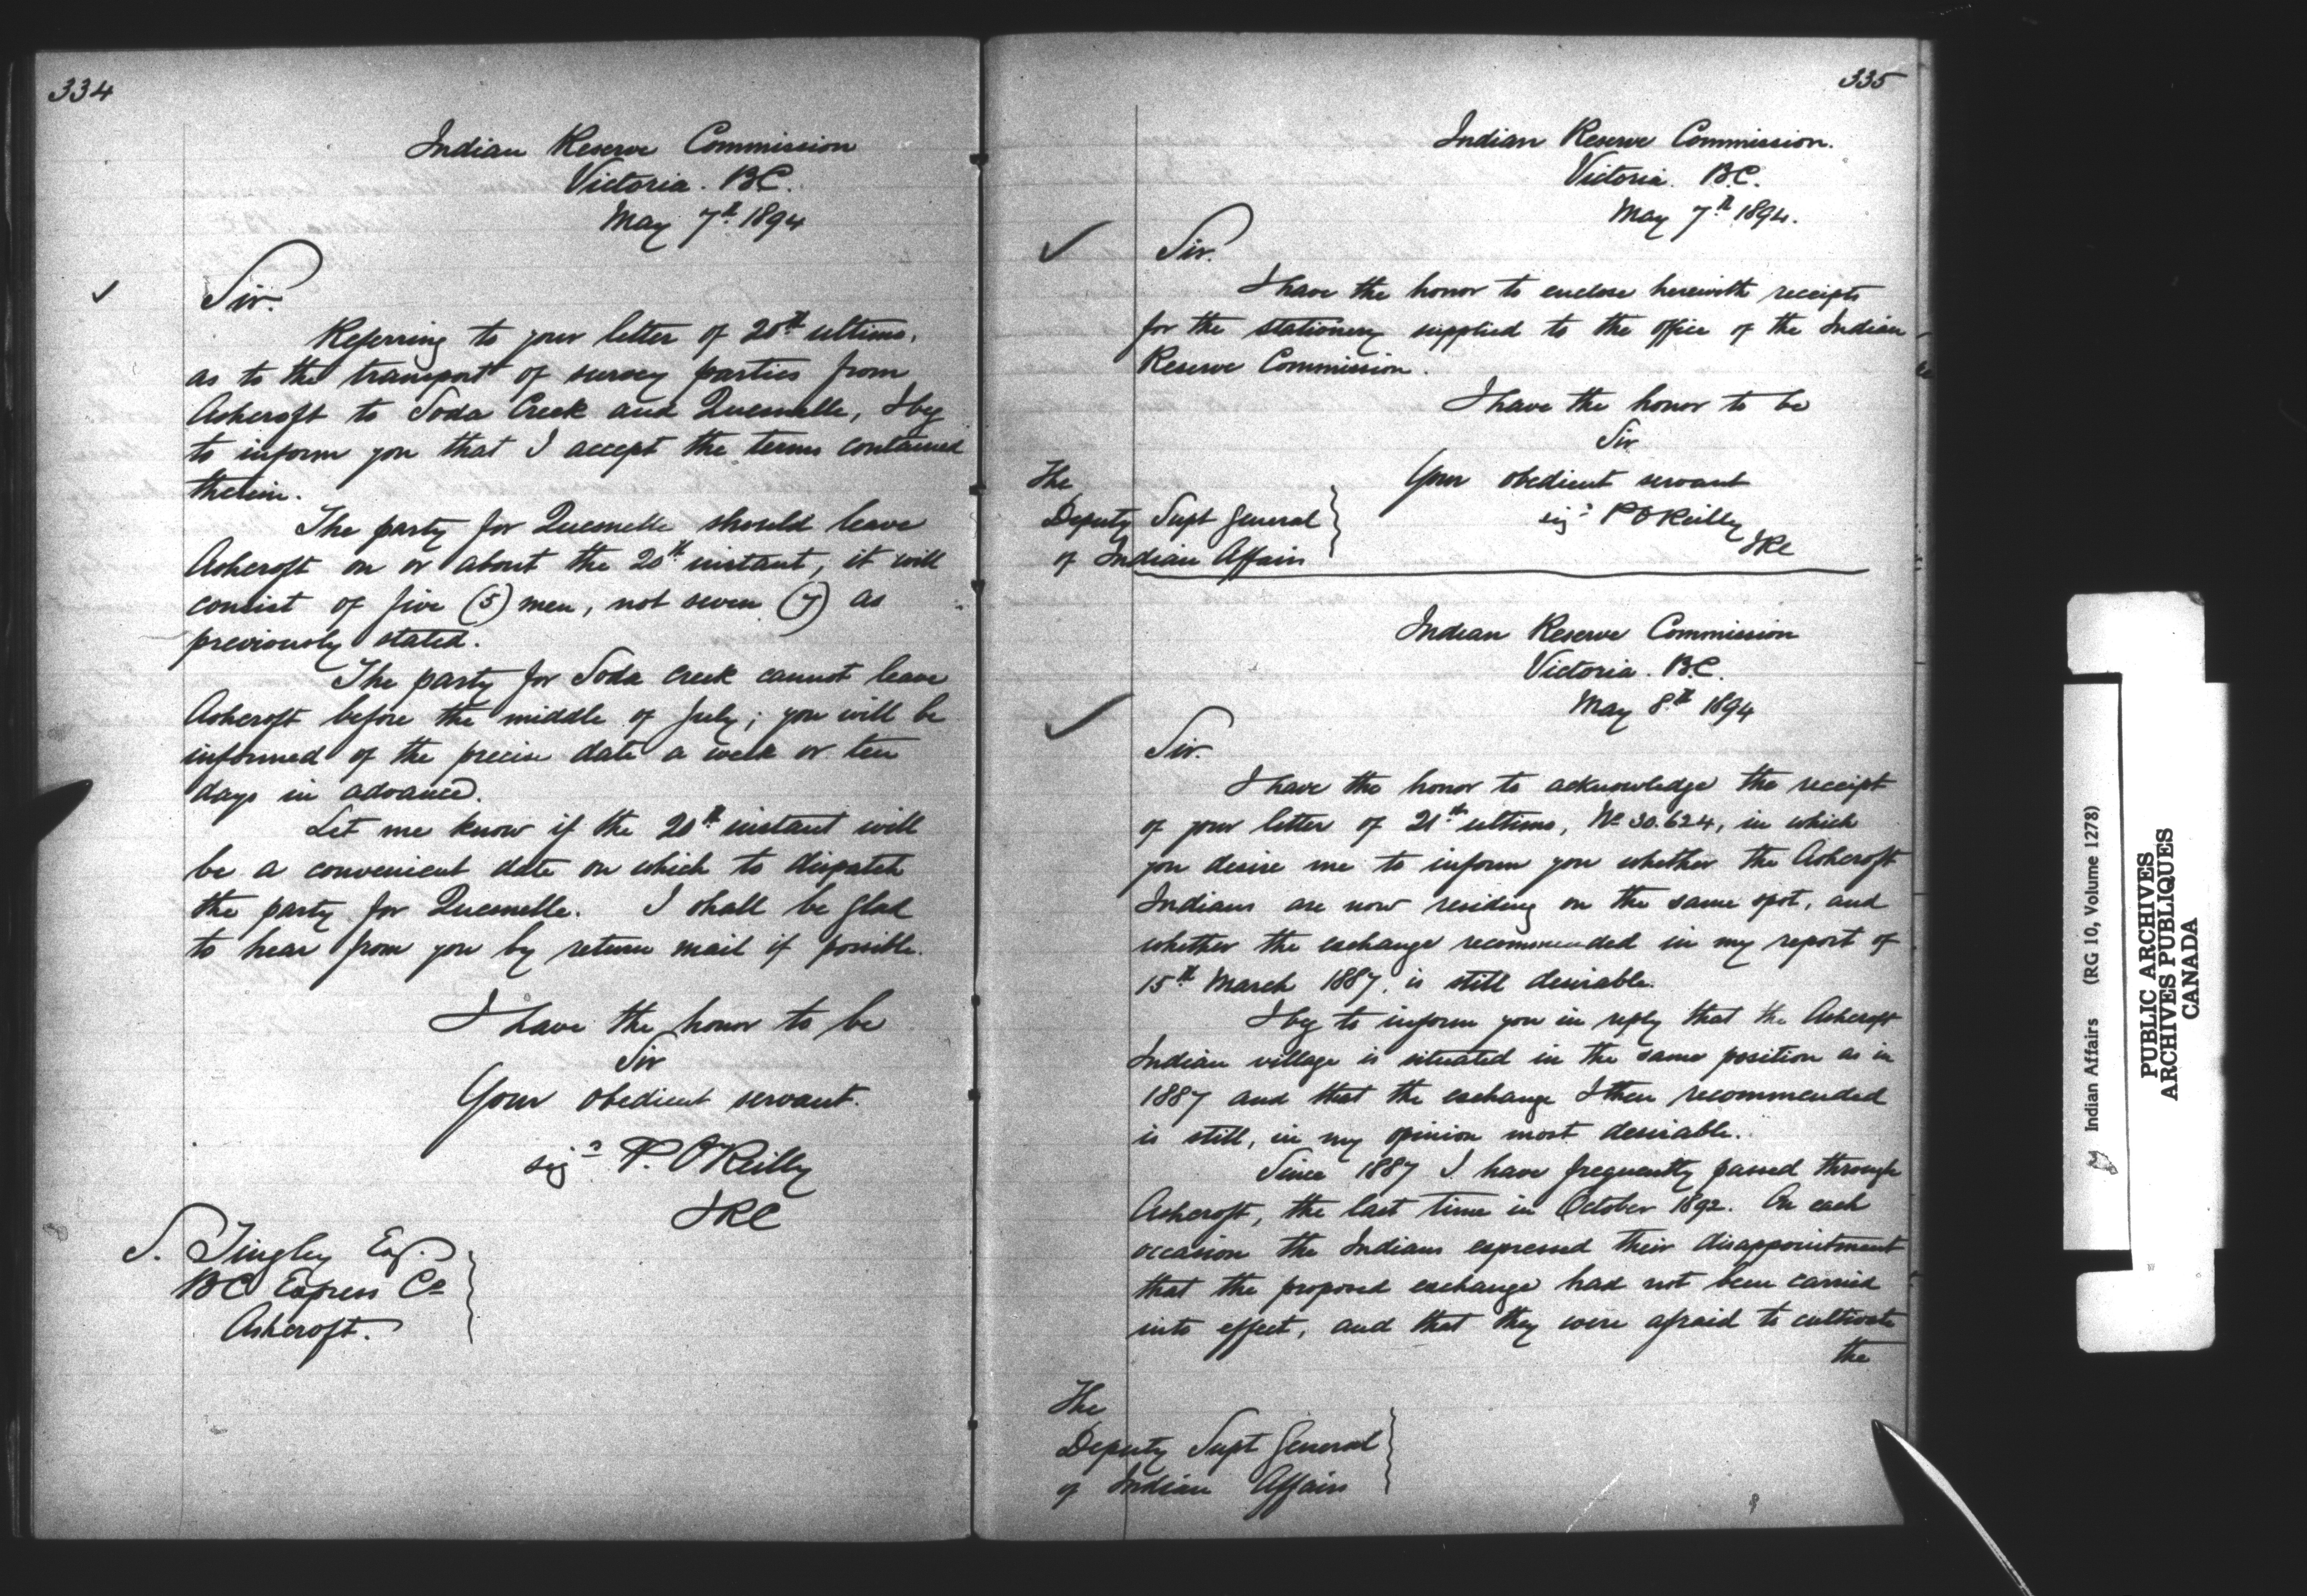 334
Indian Reserve Commission
Victoria. B.C.
May 7th 1894
Sir.
Referring to your letter of 20th ultimo,
as to the transport of survey parties from
Ashcroft to Soda Creek and Quesnelle, I beg
to inform you that I accept the terms contained
therein.
The party for Quesnelle should leave
Ashcroft on or about the 20th instant, it will
consist of five (5) men, not seven (7) as
previously stated.
The party for Soda Creek cannot leave
Ashcroft before the middle of July; you will be
informed of the precise date a week or ten
days in advance.
Let me know if the 20th instant will
be a convenient date on which to dispatch
the party for Quesnelle. I shall be glad
to hear from you by return mail if possible.
I have the honor to be
Sir
Your obedient servant.
sigd P. O'Reilly
IRC
S. Tingley Esq.
BC Express Co
Ashcroft.
335
Indian Reserve Commission.
Victoria. B.C.
May 7th 1894.
Sir.
I have the honor to enclose herewith receipts
for the stationery supplied to the office of the Indian
Reserve Commission.
I have the honor to be
Sir
Your obedient servant
sigd P O'Reilly
IRC
The
Deputy Supt General
of Indian Affairs
Indian Reserve Commission
Victoria. B.C.
May 8th 1894
Sir.
I have the honor to acknowledge the receipt
of your letter of 21st ultimo, No 30.624, in which
you desire me to inform you whether the Ashcroft
Indians are now residing on the same spot, and
whether the exchange recommended in my report of
15th March 1887, is still desirable.
I beg to inform you in reply that the Ashcroft
Indian village is situated in the same position as in
1887 and that the exchange I then recommended
is still, in my opinion most desirable.
Since 1887 I have frequently passed through
Ashcroft, the last time in October 1892. On each
occasion the Indians expressed their disappointment
that the proposed exchange had not been carried
into effect, and that they were afraid to cultivate
the
The
Deputy Supt General
of Indian Affairs
Indian Affairs (RG 10, Volume 1278)
PUBLIC ARCHIVES
ARCHIVES PUBLIQUES
CANADA